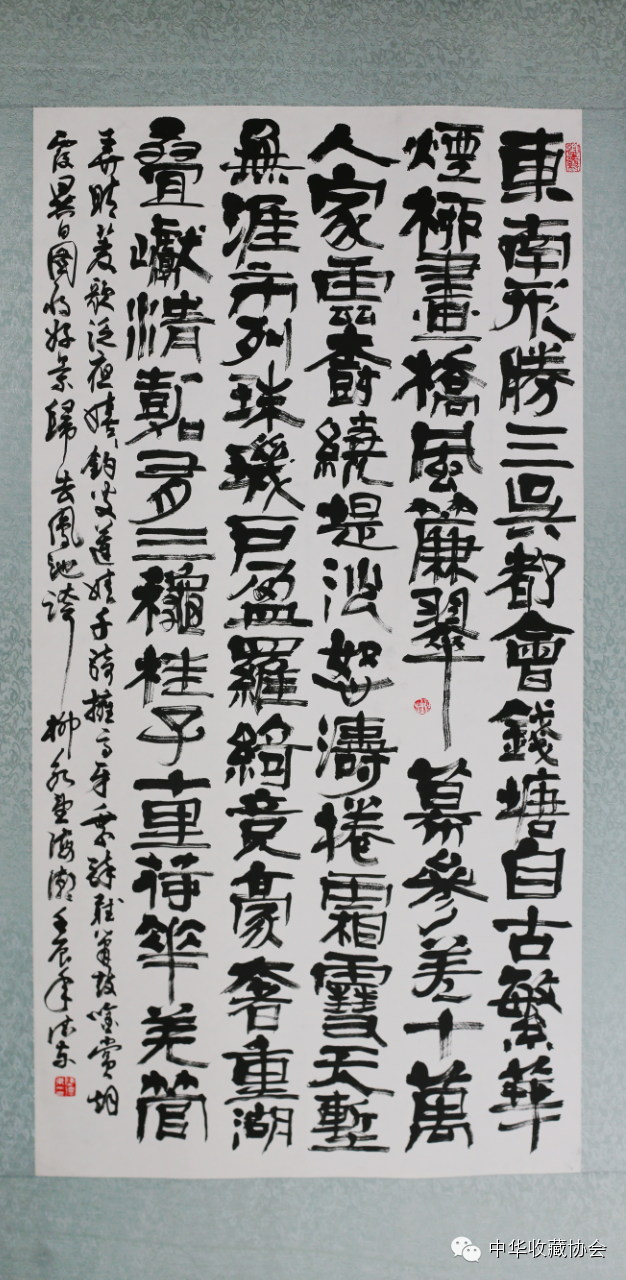 東南形勝三吳都會錢塘自古繁華
煙柳畫橋風簾翠幕參差十萬
人家雲樹繞堤沙怒濤捲霜雪天塹
無涯市列珠璣戶盈羅綺竟豪奢重湖
疊巘清嘉有三穐桂子十里荷華羌管
弄晴菱歌泛夜嬉嬉釣叟蓮娃千騎擁高牙乘醉聽簫鼓吟賞烟
霞異日圖將好景歸去鳳池誇 柳永望海潮壬辰年
中华收藏协会